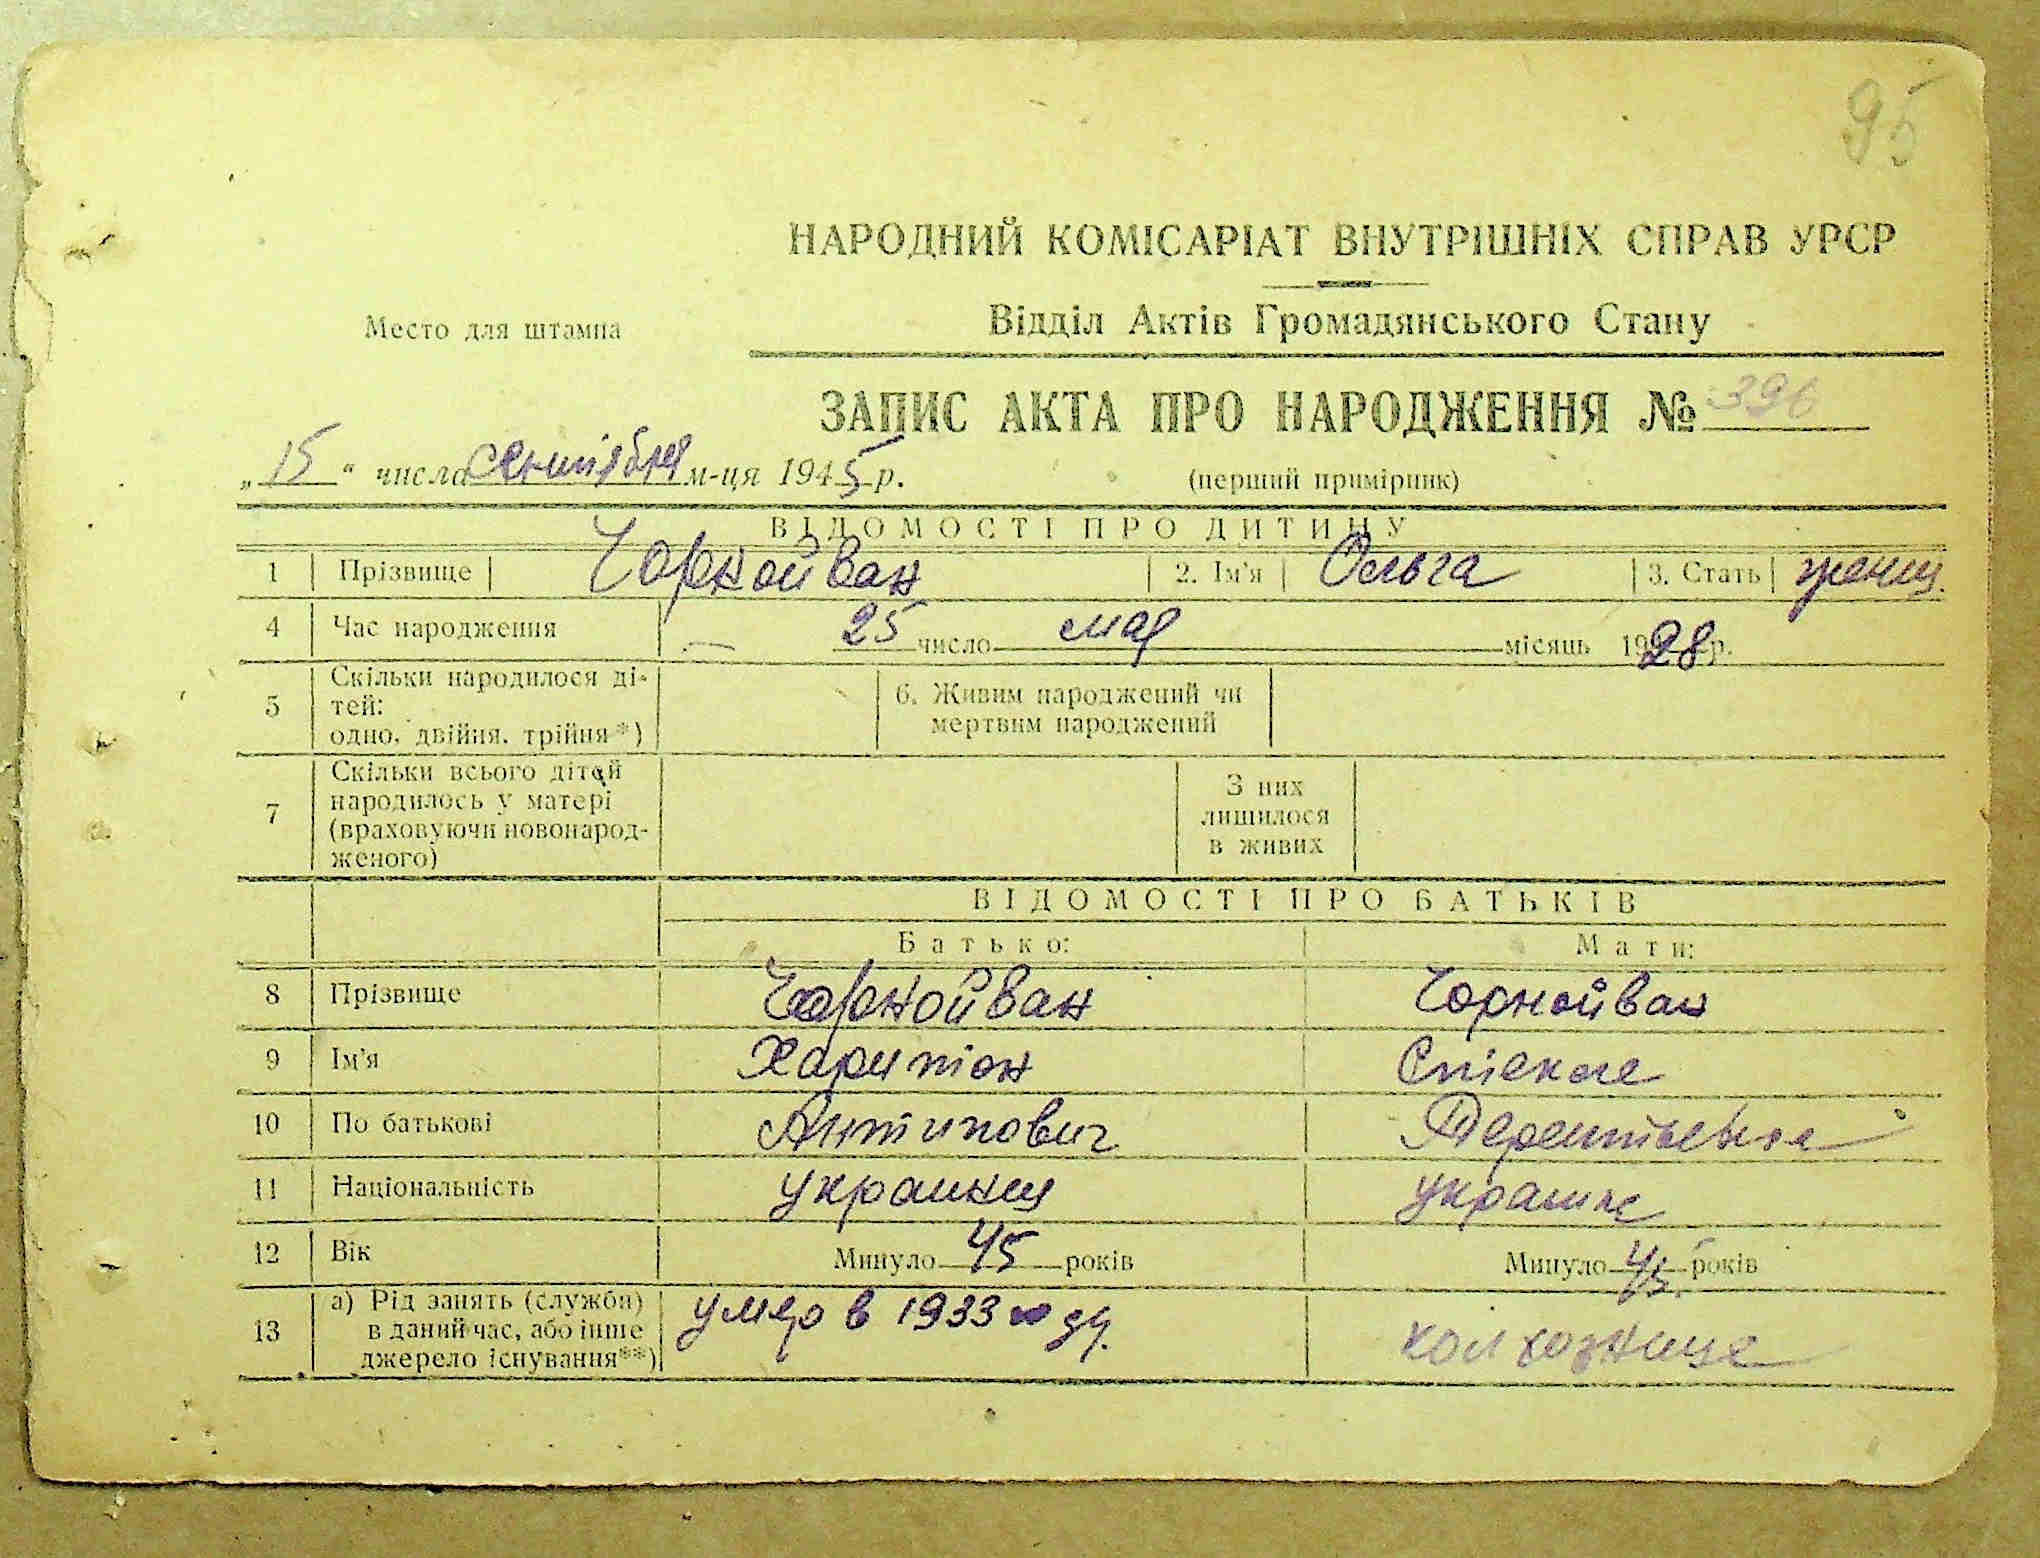 95
НАРОДНИЙ КОМІСАРІАТ ВНУТРІШНІХ СПРАВ УРСР
Место для штампа
Відділ Актів Громадянського Стану
ЗАПИС АКТА ПРО НАРОДЖЕННЯ № 396
„ 15 “ числа сентября м-ця 1945 р.
(перший примірник)
ВІДОМОСТІ ПРО ДИТИНУ
1 Прізвище Чорнойван 2. Ім'я Ольга 3. Стать женщ.
4 Час народження — 25 число мая місяць 1928 р.
5 Скільки народилося ді-
тей:
одно, двійня, трійня*)
6. Живим народжений чи
мертвим народжений
7 Скільки всього дітей
народилось у матері
(враховуючи новонарод-
женого)
З них
лишилося
в живих
ВІДОМОСТІ ПРО БАТЬКІВ
Батько: Мати:
8 Прізвище Чорнойван Чорнойван
9 Ім'я Харитон
10 По батькові Антипович
11 Національність украинец украинка
12 Вік Минуло 45 років Минуло 45 років
13 а) Рід занять (служби)
в даний час, або інше
джерело існування**)
умер в 1933 году.
колхозница